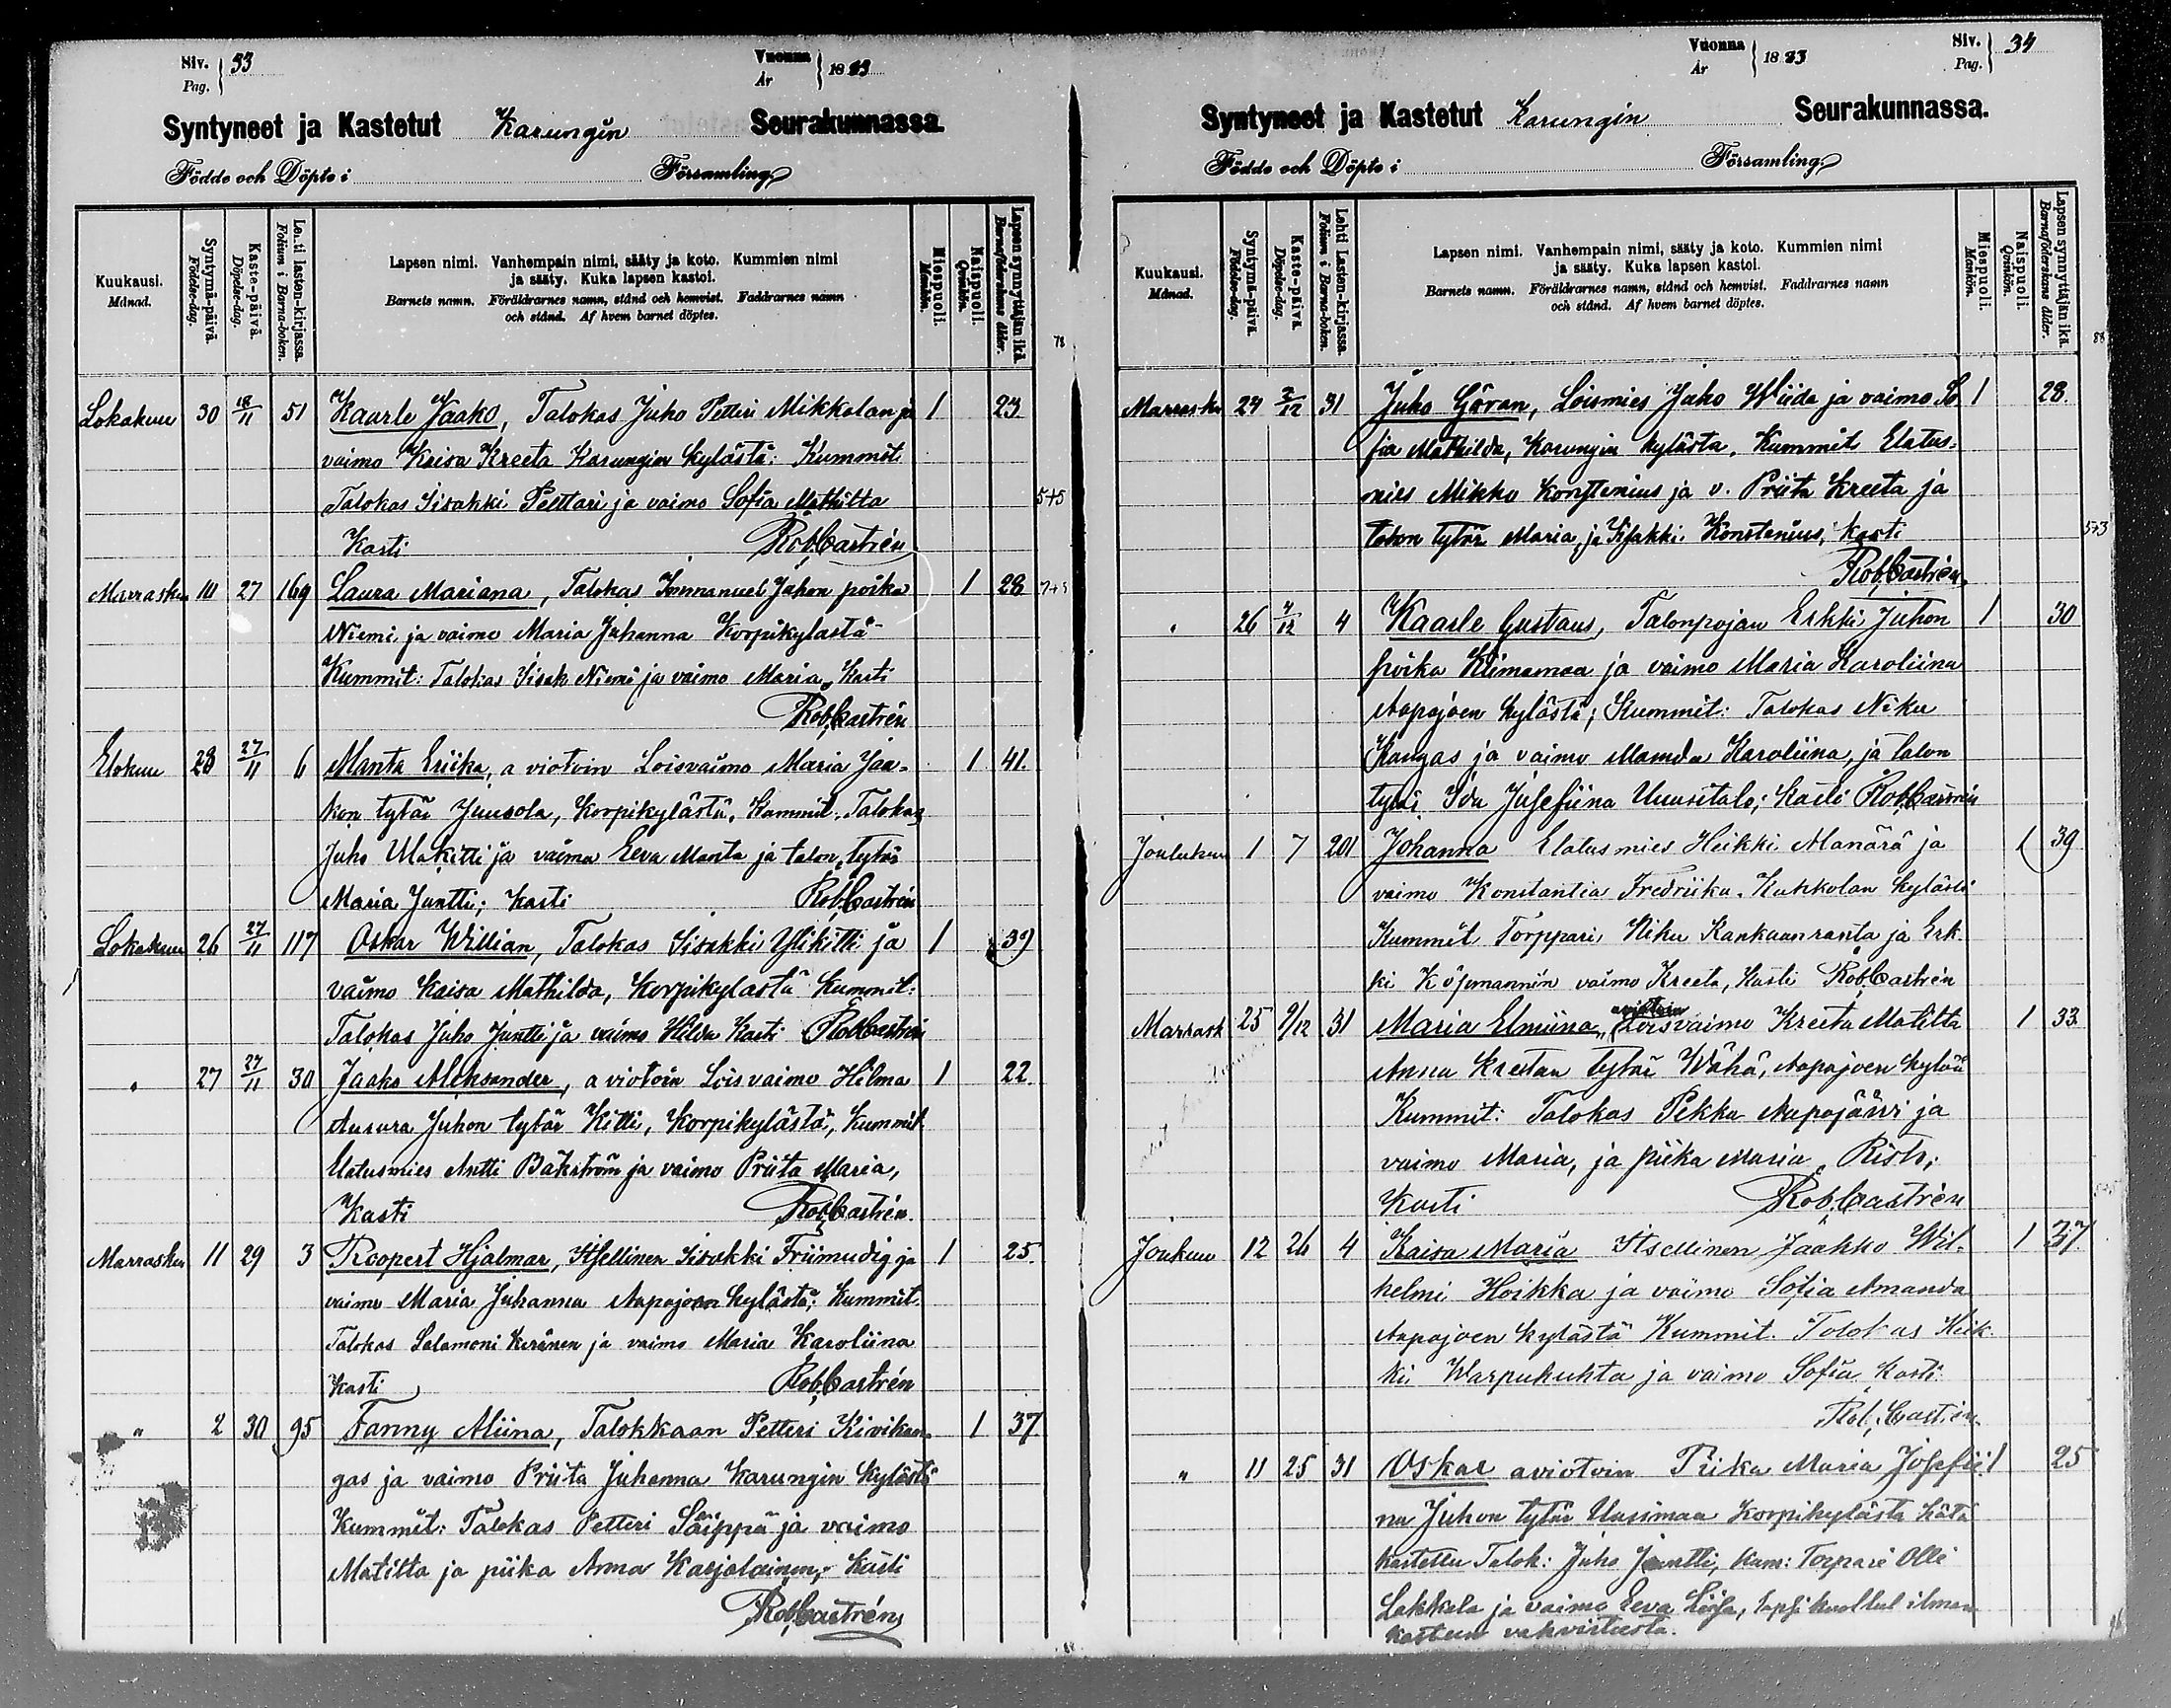 Siv. Pag. 33
Vuonna År 1883
Syntyneet ja Kastetut Karungin Seurakunnassa.
Födde och Döpte i Församling
Kuukausi. Månad.
Syntymä-päivä. Födelse-dag.
Kaste-päivä. Döpelse-dag.
Lehti lasten-kirjassa. Folium i Barna-boken.
Lapsen nimi. Vanhempain nimi, sääty ja koto. Kummien nimi
ja sääty. Kuka lapsen kastoi.
Barnets namn. Föräldrarnes namn, stånd och hemvist. Faddrarnes namn
och stånd. Af hvem barnet döptes.
Miespuoli. Mankön.
Naispuoli. Qvinkön.
Lapsen synnyttäjän ikä. Barnaföderskans ålder.
78
Lokakuu 30 18/11 51 Kaarle Jaako, Talokas Juho Petteri Mikkolan ja 1 23
vaimo Kaisa Kreeta Karungin kylästä. Kummit.
Talokas Iisakki Pelttari ja vaimo Sofia Mathilta 5+5
Kasti Rob. Castrén
Marrasku 10 27 169 Laura Mariana, Talokas Immanuel Juhon poika 1 28 7+5
Niemi ja vaimo Maria Johanna Korpikylästä
Kummit: Talokas Iisak Niemi ja vaimo Maria, Kasti
Rob. Castrén
Elokuu 28 27/11 6 Manta Eriika, a viotoin Loisvaimo Maria Jaa- 1 41.
kon tytär Juusola, Korpikylästä, Kummit. Talokas
Juho Ulakitti ja vaimo Eeva Manta ja talon tytär
Maria Juntti; Kasti Rob. Castrén
Lokakuu 26 27/11 117 Oskar Willian, Talokas Iisakki Ylikitti ja 1 39
vaimo Kaisa Mathilda, Korpikylästä Kummit:
Talokas Juho Juntti ja vaimo Hilda Kasti Rob. Castrén
" 27 27/11 30 Jaako Aleksander, a viotoin Loisvaimo Hilma 1 22.
Aurura Juhon tytär Kitti, Korpikylästä, Kummit
Elatusmies Antti Bäkström ja vaimo Priita Maria,
Kasti Rob. Castrén.
Marrasku 11 29 3 Roopert Hjalmar, Itsellinen Iisakki Friimudig ja 1 25.
vaimo Maria Johanna Aapajoen kylästä; Kummit.
Talokas Salamoni Keränen ja vaimo Maria Karoliina
Kasti Rob. Castrén
" 2 30 95 Fanny Aliina, Talokkaan Petteri Kivikan- 1 37.
gas ja vaimo Priita Johanna Karungin kylästä
Kummit: Talokas Petteri Säippä ja vaimo
Matilta ja piika Anna Karjalainen, Kasti
Rob. Castrén
Vuonna År 1883
Siv. Pag. 34
Syntyneet ja Kastetut Karungin Seurakunnassa.
Födde och Döpte i Församling
Kuukausi. Månad.
Syntymä-päivä. Födelse-dag.
Kaste-päivä. Döpelse-dag.
Lehti Lasten-kirjassa. Folium i Barna-boken.
Lapsen nimi. Vanhempain nimi, sääty ja koto. Kummien nimi
ja sääty. Kuka lapsen kastoi.
Barnets namn. Föräldrarnes namn, stånd och hemvist. Faddrarnes namn
och stånd. Af hvem barnet döptes.
Miespuoli. Mankön.
Naispuoli. Qvinkön.
Lapsen synnyttäjän ikä. Barnaföderskans ålder.
88
Marrasku 24 2/12 31 Juho Göran, Loismies Juho Wiida ja vaimo So 1 28.
fia Mathilda, Karungin kylästa. Kummit Elatus-
mies Mikko Konstenius ja v. Priita Kreeta ja
talon tytär Maria, ja Iisakki Konstenius, kasti 5+3
Rob. Castrén.
" 26 4/12 4 Kaarle Gustaus, Talonpojan Erkki Juhon 1 30
poika Kiimamaa ja vaimo Maria Karoliina
Aapajoen kylästä; Kummit: Talokas Niku
Kangas ja vaimo Mamda Karoliina, ja talon
tytär Ida Josefiina Uusitalo; Kasti Rob. Castrén
Joulukuu 1 7 201 Johanna Elatusmies Heikki Manärä ja 1 39
vaimo Konstantia Fredriika, Kukkolan kylästä
Kummit Torppari Niku Kankaanranta ja Erk-
ki Köjemannin vaimo Kreeta, Kasti Rob. Castrén
aviotoin
Marrask 25 9/12 31 Maria Elmiina, Loisvaimo Kreeta Matilta 1 33
Anna Kreetan tytär Wähä, Aapajoen kylän
Kummit: Talokas Pekka Aapajärvi ja
vaimo Maria, ja piika Maria Risto;
Kasti Rob. Castrén
Joukuu 12 26 4 Kaisa Maria Itsellinen Jaakko Wil- 1 37.
helmi Hoikka ja vaimo Sofia Amanda
Aapajoen kylästä Kummit. Talokas Heik-
ki Warpuhuhta ja vaimo Sofia. Kasti
Rob. Castrén
" 11 25 31 Oskar aviotoin Piika Maria Josefii- 1 25
na Juhon tytär Uusimaa Korpikylästa hätä
kastettu Talok: Juho Juntti, kum: Torpari Olli
Lakkala ja vaimo Eeva Liisa, lapsi kuollut ilman
kasteen vahvistusta.